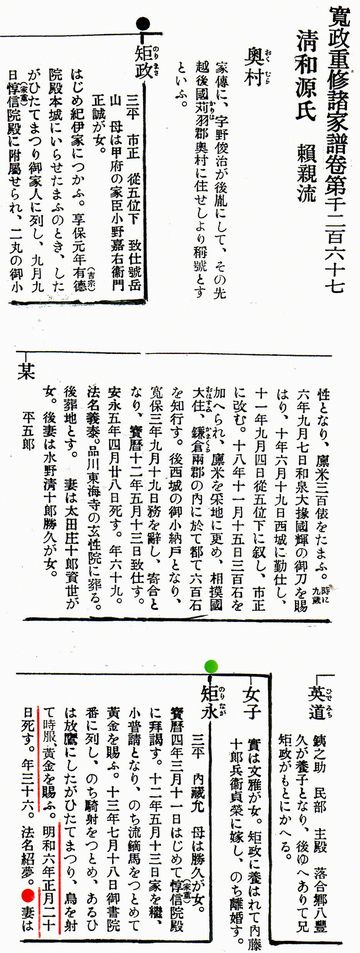 寛政重修諸家譜卷第千二百六十七
清和源氏 賴親流
奥村
おくむら
家傳に、宇野俊治が後胤にして、その先
越後國苅羽郡奥村に住せしより稱號とす
かりは
といふ。
矩政
のりまさ
三平 市正 從五位下 致仕號岳
山 母は甲府の家臣小野嘉右衞門
正誠が女。
はじめ紀伊家につかふ。享保元年有德
(吉宗)
院殿本城にいらせたまふのとき、した
がひたてまつり御家人に列し、九月九
日惇信院殿に附屬せられ、二丸の御小
(家重)
性となり、廩米三百俵をたまふ。時に
九歲
六年九月七日和泉大掾國輝の御刀を賜
はり、十年六月十九日西城に勤仕し、
十一年九月四日從五位下に叙し、市正
に改む。十八年十一月十五日三百石を
加へられ、廩米を采地に更め、相摸國
大住、鎌倉兩郡の内に於て都て六百石
を知行す。後西城の御小納戶となり、
寬保三年九月十九日務を辭し、寄合と
なり、寶曆十二年五月十三日致仕す。
安永五年四月廿八日死す。年六十九。
法名義泰。品川東海寺の玄性院に葬る。
後葬地とす。 妻は太田庄十郞資世が
女。後妻は水野清十郞勝久が女。
某
平五郞
英道
ひでみち
銕之助 民部 主殿 落合鄕八豐
久が養子となり、後ゆへありて兄
矩政がもとにかへる。
女子
實は文雅が女。矩政に養はれて内藤
十郞兵衞貞榮に嫁し、のち離婚す。
矩永
のりなが
三平 内藏允 母は勝久が女。
寶曆四年三月十一日はじめて惇信院殿
(家重)
に拜謁す。十二年五月十三日家を繼、
小普請となり、のち流鏑馬をつとめて
黃金を賜ふ。十三年七月十八日御書院
番に列し、のち騎射をつとめ、あるひ
は放鷹にしたがひたてまつり、鳥を射
て時服、黃金を賜ふ。明和六年正月二十
日死す。年三十六。法名紹夢。妻は